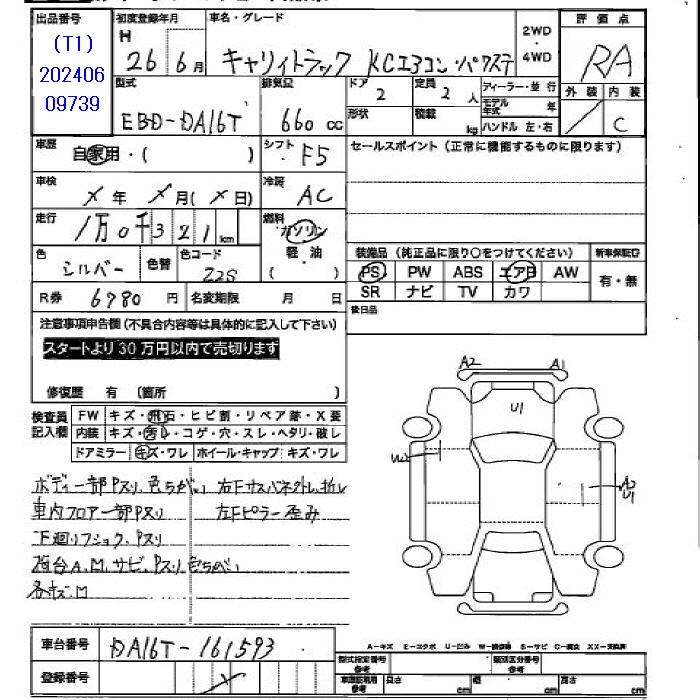 出品番号 初度登録年月 車名・グレード 2WD・4WD 評価点
(T1)
202406
09739
H 26年 6月 キャリィトラック KCエアコン・パワステ RA
型式 排気量 ドア 定員 ディーラー・並行 外装 内装
EBD-DA16T 660 cc 2 2人 モデル年式 年
形状 積載 kg ハンドル 左・右 / C
車歴 自家用・( ) シフト F5 セールスポイント (正常に機能するものに限ります)
車検 ×年 ×月(×日) 冷房 AC
走行 1万0千321km 燃料 ガソリン
軽・油
( )
色 シルバー 色替 色コード Z2S
装備品 (純正品に限り○をつけてください) 新車保証印
PS PW ABS エアB AW 有・無
SR ナビ TV カワ
R券 6780円 名変期限 月 日
後日品
注意事項申告欄(不具合内容等は具体的に記入して下さい)
スタートより30万円以内で売切ります
修復歴 有 (箇所 )
検査員記入欄
FW キズ・飛石・ヒビ割・リペア跡・X要
内装 キズ・汚れ・コゲ・穴・スレ・ヘタリ・破レ
ドアミラー キズ・ワレ ホイール・キャップ キズ・ワレ
A2 A1
U1
W2
A2
U1
ボディー部Pスリ、色ちがい 右Fサスバネ外し、折レ
車内フロアー部Pスリ 左Fピラー歪み
下廻リフショク、Pスリ
荷台A、M、サビ、Pスリ 色ちがい
各キズ、M
A-キズ E-エクボ U-凹み W-補修跡 S-サビ C-腐食 XX-交換済
車台番号 DA16T-161593
登録番号 ×
型式指定番号 参考 類別区分番号 参考
車庫証明用 参考 長さ cm 幅 cm 高さ cm